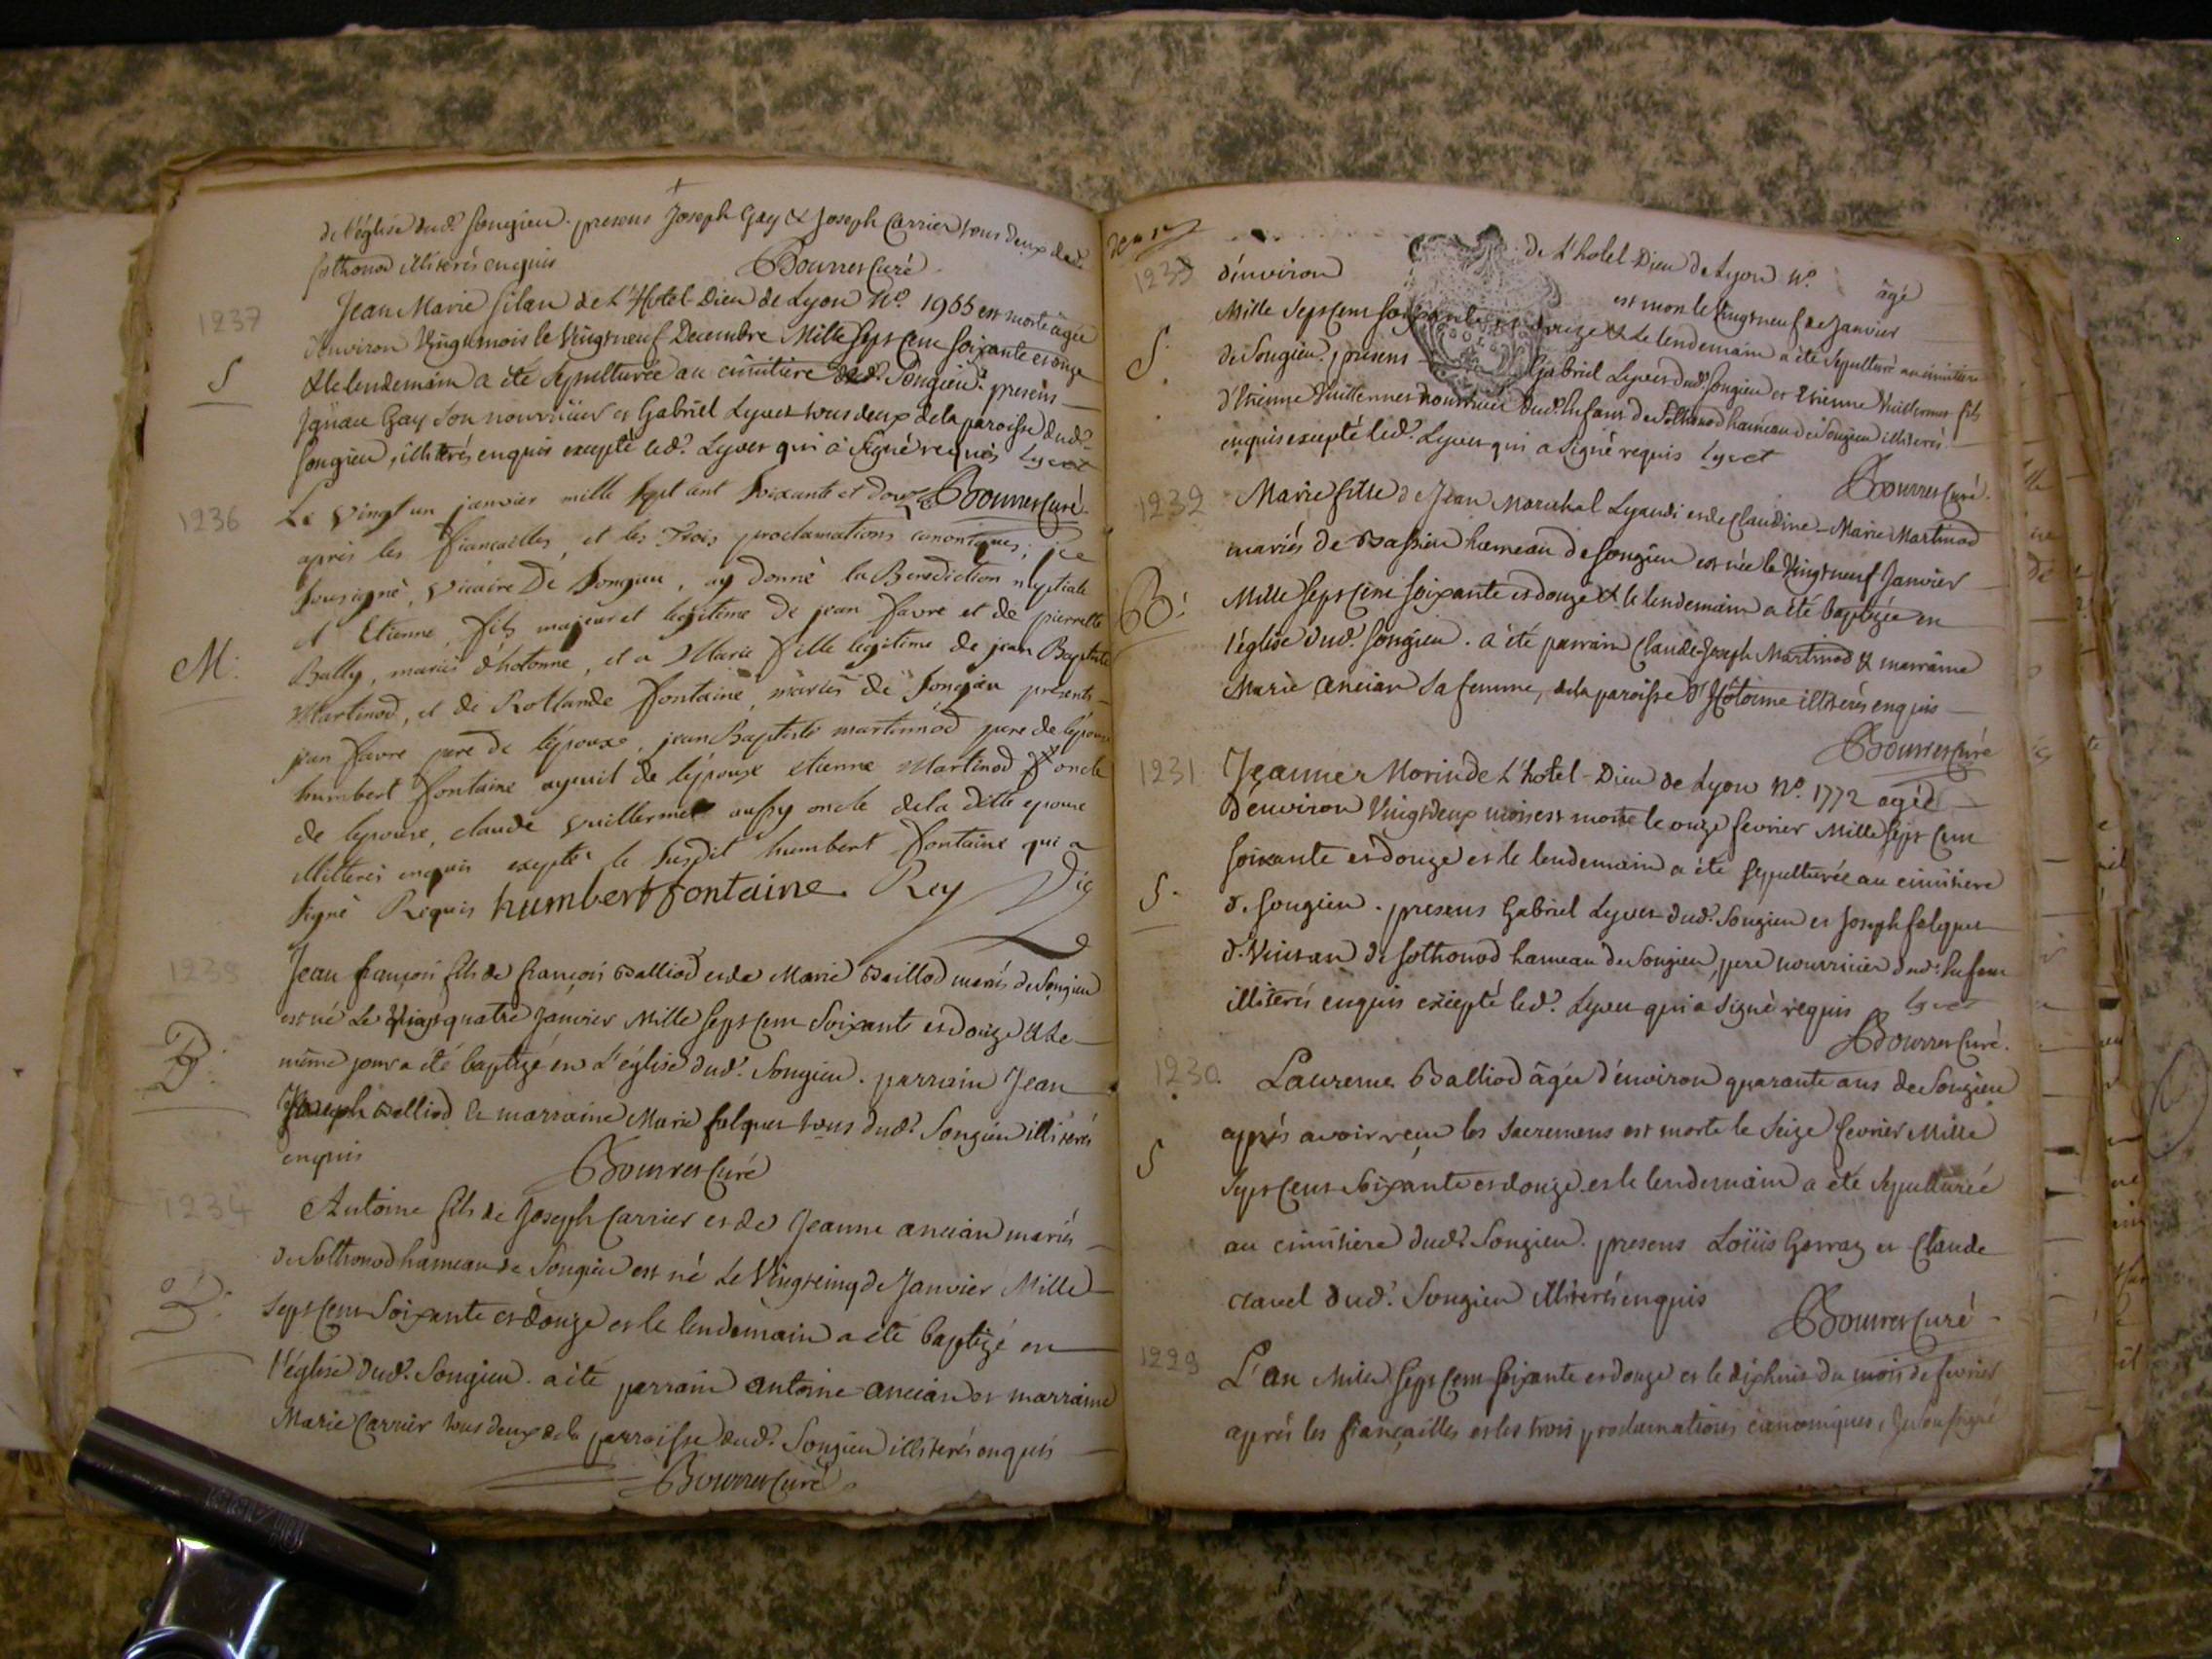 de l'église dud. Songieu. presens Joseph Gay & Joseph Carrier tous deux dud.
Sothonod illiterés enquis Bourret Curé
1237
Jean Marie Silan de L'Hotel-Dieu de Lyon N.° 1955 est morte âgée
d'environ Vingt mois le Vingt neuf Decembre Mille Sept Cent Soixante et onze
S
& le lendemain a été Sepulturée au cimitiere dud. Songieu. presens
Gay Son nourricier et Gabriel Lyvet tous deux de la paroisse dud.
Songieu, illiterés enquis excepté led. Lyvet qui a Signé requis Lyvet
Bourret Curé
1236
Le vingt un janvier mille sept cent soixante et douze
après les fiançailles, et les trois proclamations canoniques, je
soussigné, vicaire de Songieu, ay donné la Benediction nuptiale
a Etienne, fils majeur et legitime de jean favre et de pierrette
M.
Bally, mariés d'hotonne, et a Marie fille legitime de jean Baptiste
Martinod, et de Rollande fontaine, mariés de Songieu presents
jean favre pere de l'époux, jean Baptiste martinod pere de l'épouse
humbert fontaine ayeuil de l'épouse etienne Martinod oncle
de lepouse, claude vuillermet aussy oncle de la ditte epouse
illiteres enquis excepté le susdit humbert fontaine qui a
signé Requis humbert fontaine Rey Vic
1235
Jean françois fils de françois Balliod et de Marie Baillod mariés de Songieu
est né Le Vingt quatre Janvier Mille Sept Cent Soixante et Douze & Le
B.
même jour a été baptizé en L'église dud. Songieu. parrain Jean
Joseph Balliod & marraine Marie falquet tous dud. Songieu illiterés
enquis
Bourret Curé
1234
Antoine fils de Joseph Carrier et de Jeanne ancian mariés
de Sothonod hameau de Songieu est né Le Vingt cinq de Janvier Mille
B.
Sept Cent Soixante et douze et le lendemain a été baptizé en
l'église dud. Songieu. a été parrain antoine ancian et marraine
Marie Carrier tous deux de la parroisse dud. Songieu illiterés enquis
Bourret Curé
1233
de L'hotel-Dieu de Lyon N.° âgé
d'environ est mort le Vingt neuf de Janvier
Mille Sept Cent Soixante et douze & Le lendemain a été Sepulturé au cimitiere
S.
de Songieu. presens Gabriel Lyvet dud. Songieu et Etienne Vuillermet fils
d'Etienne Vuillermet nourricier dud. Enfant de Sothonod hameau de Songieu illiterés
enquis excepté led. Lyvet qui a Signé requis Lyvet
Bourret Curé.
1232
Marie fille de Jean Marechal Lyaudi et de Claudine-Marie Martinod
mariés de Bassieu hameau de Songieu est née le Vingt neuf Janvier
B.
Mille Sept Cent Soixante et douze & le lendemain a été baptizée en
l'église dud. Songieu. a été parrain Claude-Joseph Martinod & marraine
Marie ancian sa femme, de la paroisse d'Hotonne illiterés enquis
Bourret Curé
1231
Jeanne Morin de L'hotel-Dieu de Lyon N.° 1772 agée
d'environ Vingt Deux mois est morte le onze fevrier Mille Sept Cent
soixante et douze et le lendemain a été sepulturée au cimitiere
S.
d. Songieu. presens Gabriel Lyvet dud. Songieu et Joseph falquet
d. de Sothonod hameau de Songieu, pere nourricier dud. Enfant
illiterés enquis excepté led. Lyvet qui a Signé requis Lyvet
Bourret Curé.
1230
Laurence Balliod âgée d'environ quarante ans de Songieu
après avoir reçu les Sacremens est morte le Seize fevrier Mille
S
Sept Cent Soixante et douze et le lendemain a été Sepulturée
au cimitiere dud. Songieu. presens Loüis Gerraz et Claude
clavel dud. Songieu illiterés enquis
Bourret Curé
1229
L'an Mille Sept Cent Soixante et douze et le dixhuit du mois de fevrier
après les fiançailles et les trois proclamations canoniques, Je Soussigné